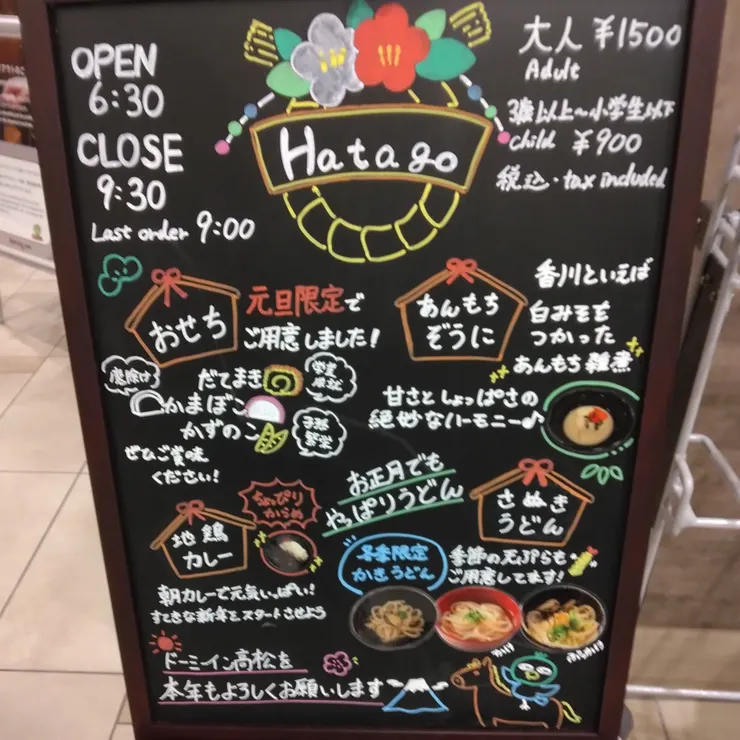 OPEN
6:30
CLOSE
9:30
Last order 9:00
Hatago
大人 ¥1500
Adult
3歳以上〜小学生以下
child ¥900
税込・tax included
おせち
元旦限定で
ご用意しました!
魔除け
だてまき
学業
成就
かまぼこ
かずのこ
子孫
繁栄
ぜひご賞味
ください!
あんもち
ぞうに
香川といえば
白みそを
つかった
あんもち雑煮
甘さとしょっぱさの
絶妙なハーモニー♪
お正月でも
やっぱりうどん
地鶏
カレー
ちょっぴり
からめ
朝カレーで元気いっぱい!
すてきな新年をスタートさせよう
さぬき
うどん
冬季限定
かきうどん
季節の天ぷらも
ご用意してます!
かけ
ぶっかけ
ドーミイン高松を
本年もよろしくお願いします